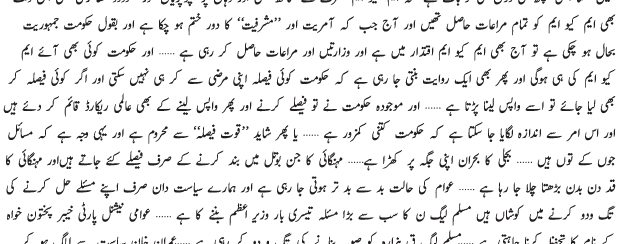 بھی ایم کیو ایم کو تمام مراعات حاصل تھیں اور آج جب کہ آمریت اور ’’مشرفیت‘‘ کا دور ختم ہو چکا ہے اور بقول حکومت جمہوریت
بحال ہو چکی ہے تو آج بھی ایم کیو ایم اقتدار میں ہے اور وزارتیں اور مراعات حاصل کر رہی ہے ...... اور حکومت کوئی بھی آئے ایم
کیو ایم کی ہی ہوگی اور پھر بھی ایک روایت بنتی جا رہی ہے کہ حکومت کوئی فیصلہ اپنی مرضی سے کر ہی نہیں سکتی اور اگر کوئی فیصلہ کر
بھی لیا جائے تو اسے واپس لینا پڑتا ہے ...... اور موجودہ حکومت نے تو فیصلے کرنے اور پھر واپس لینے کے بھی عالمی ریکارڈ قائم کر دئے ہیں
اور اس امر سے اندازہ لگایا جا سکتا ہے کہ حکومت کتنی کمزور ہے ...... یا پھر شاید ’’قوت فیصلہ‘‘ سے محروم ہے اور یہی وجہ ہے کہ مسائل
جوں کے توں ہیں ...... بجلی کا بحران اپنی جگہ پر کھڑا ہے...... مہنگائی کا جن بوتل میں بند کرنے کے صرف فیصلے کئے جاتے ہیں اور مہنگائی کا
قد دن بدن بڑھتا چلا جا رہا ہے ...... عوام کی حالت بد سے بد تر ہوتی جا رہی ہے اور ہمارے سیاست دان صرف اپنے مسئلے حل کرنے کی
تگ ودو کرنے میں کوشاں ہیں مسلم لیگ ن کا سب سے بڑا مسئلہ تیسری بار وزیر اعظم بننے کا ہے ...... عوامی نیشنل پارٹی خیبر پختون خواہ
کے نام کا تحفظ کرنا چاہتی ہے ...... مسلم لیگ ق ہزارہ کو صوبہ بنانے کی تگ و دو کر رہی ہے ......عمران خان سیاست سے الگ ہو کے